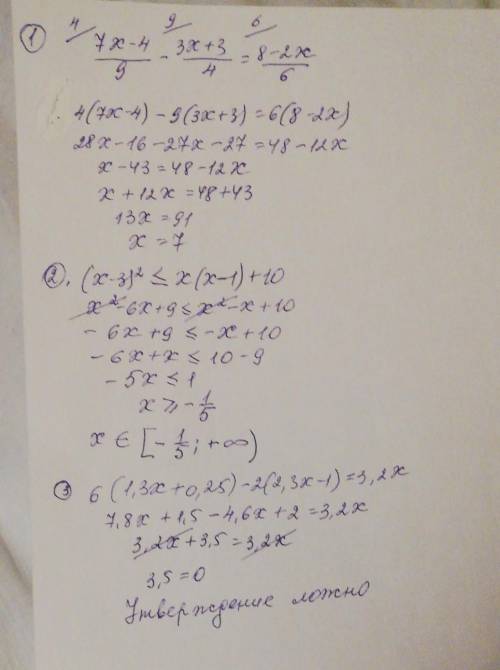 4/ 9/ 6/
① (7x-4)/9 - (3x+3)/4 = (8-2x)/6
4(7x-4) - 9(3x+3) = 6(8-2x)
28x-16-27x-27=48-12x
x-43=48-12x
x+12x=48+43
13x=91
x=7
②. (x-3)² ≤ x(x-1)+10
x²-6x+9 ≤ x²-x+10
-6x+9 ≤ -x+10
-6x+x ≤ 10-9
-5x ≤ 1
x ≥ -1/5
x ∈ [-1/5; +∞)
③ 6(1,3x+0,25)-2(2,3x-1)=3,2x
7,8x+1,5-4,6x+2=3,2x
3,2x+3,5=3,2x
3,5=0
Утверждение ложно